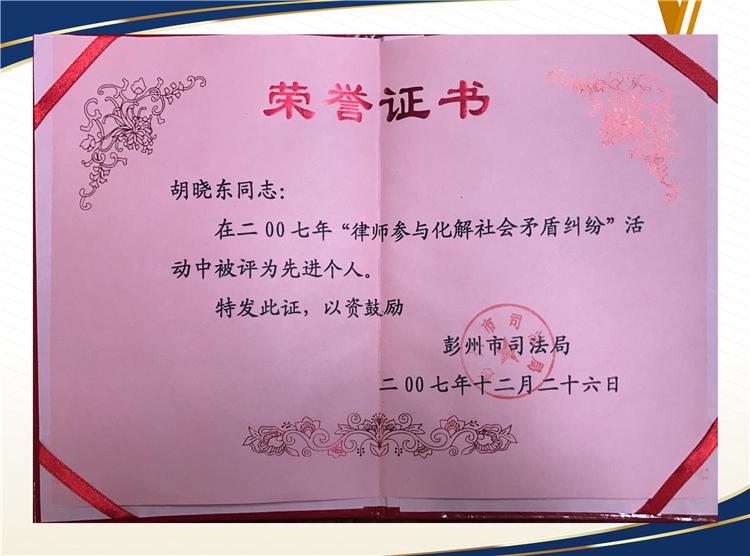 荣誉证书
胡晓东同志：
在二00七年“律师参与化解社会矛盾纠纷”活
动中被评为先进个人。
特发此证，以资鼓励
彭州市司法局
二00七年十二月二十六日